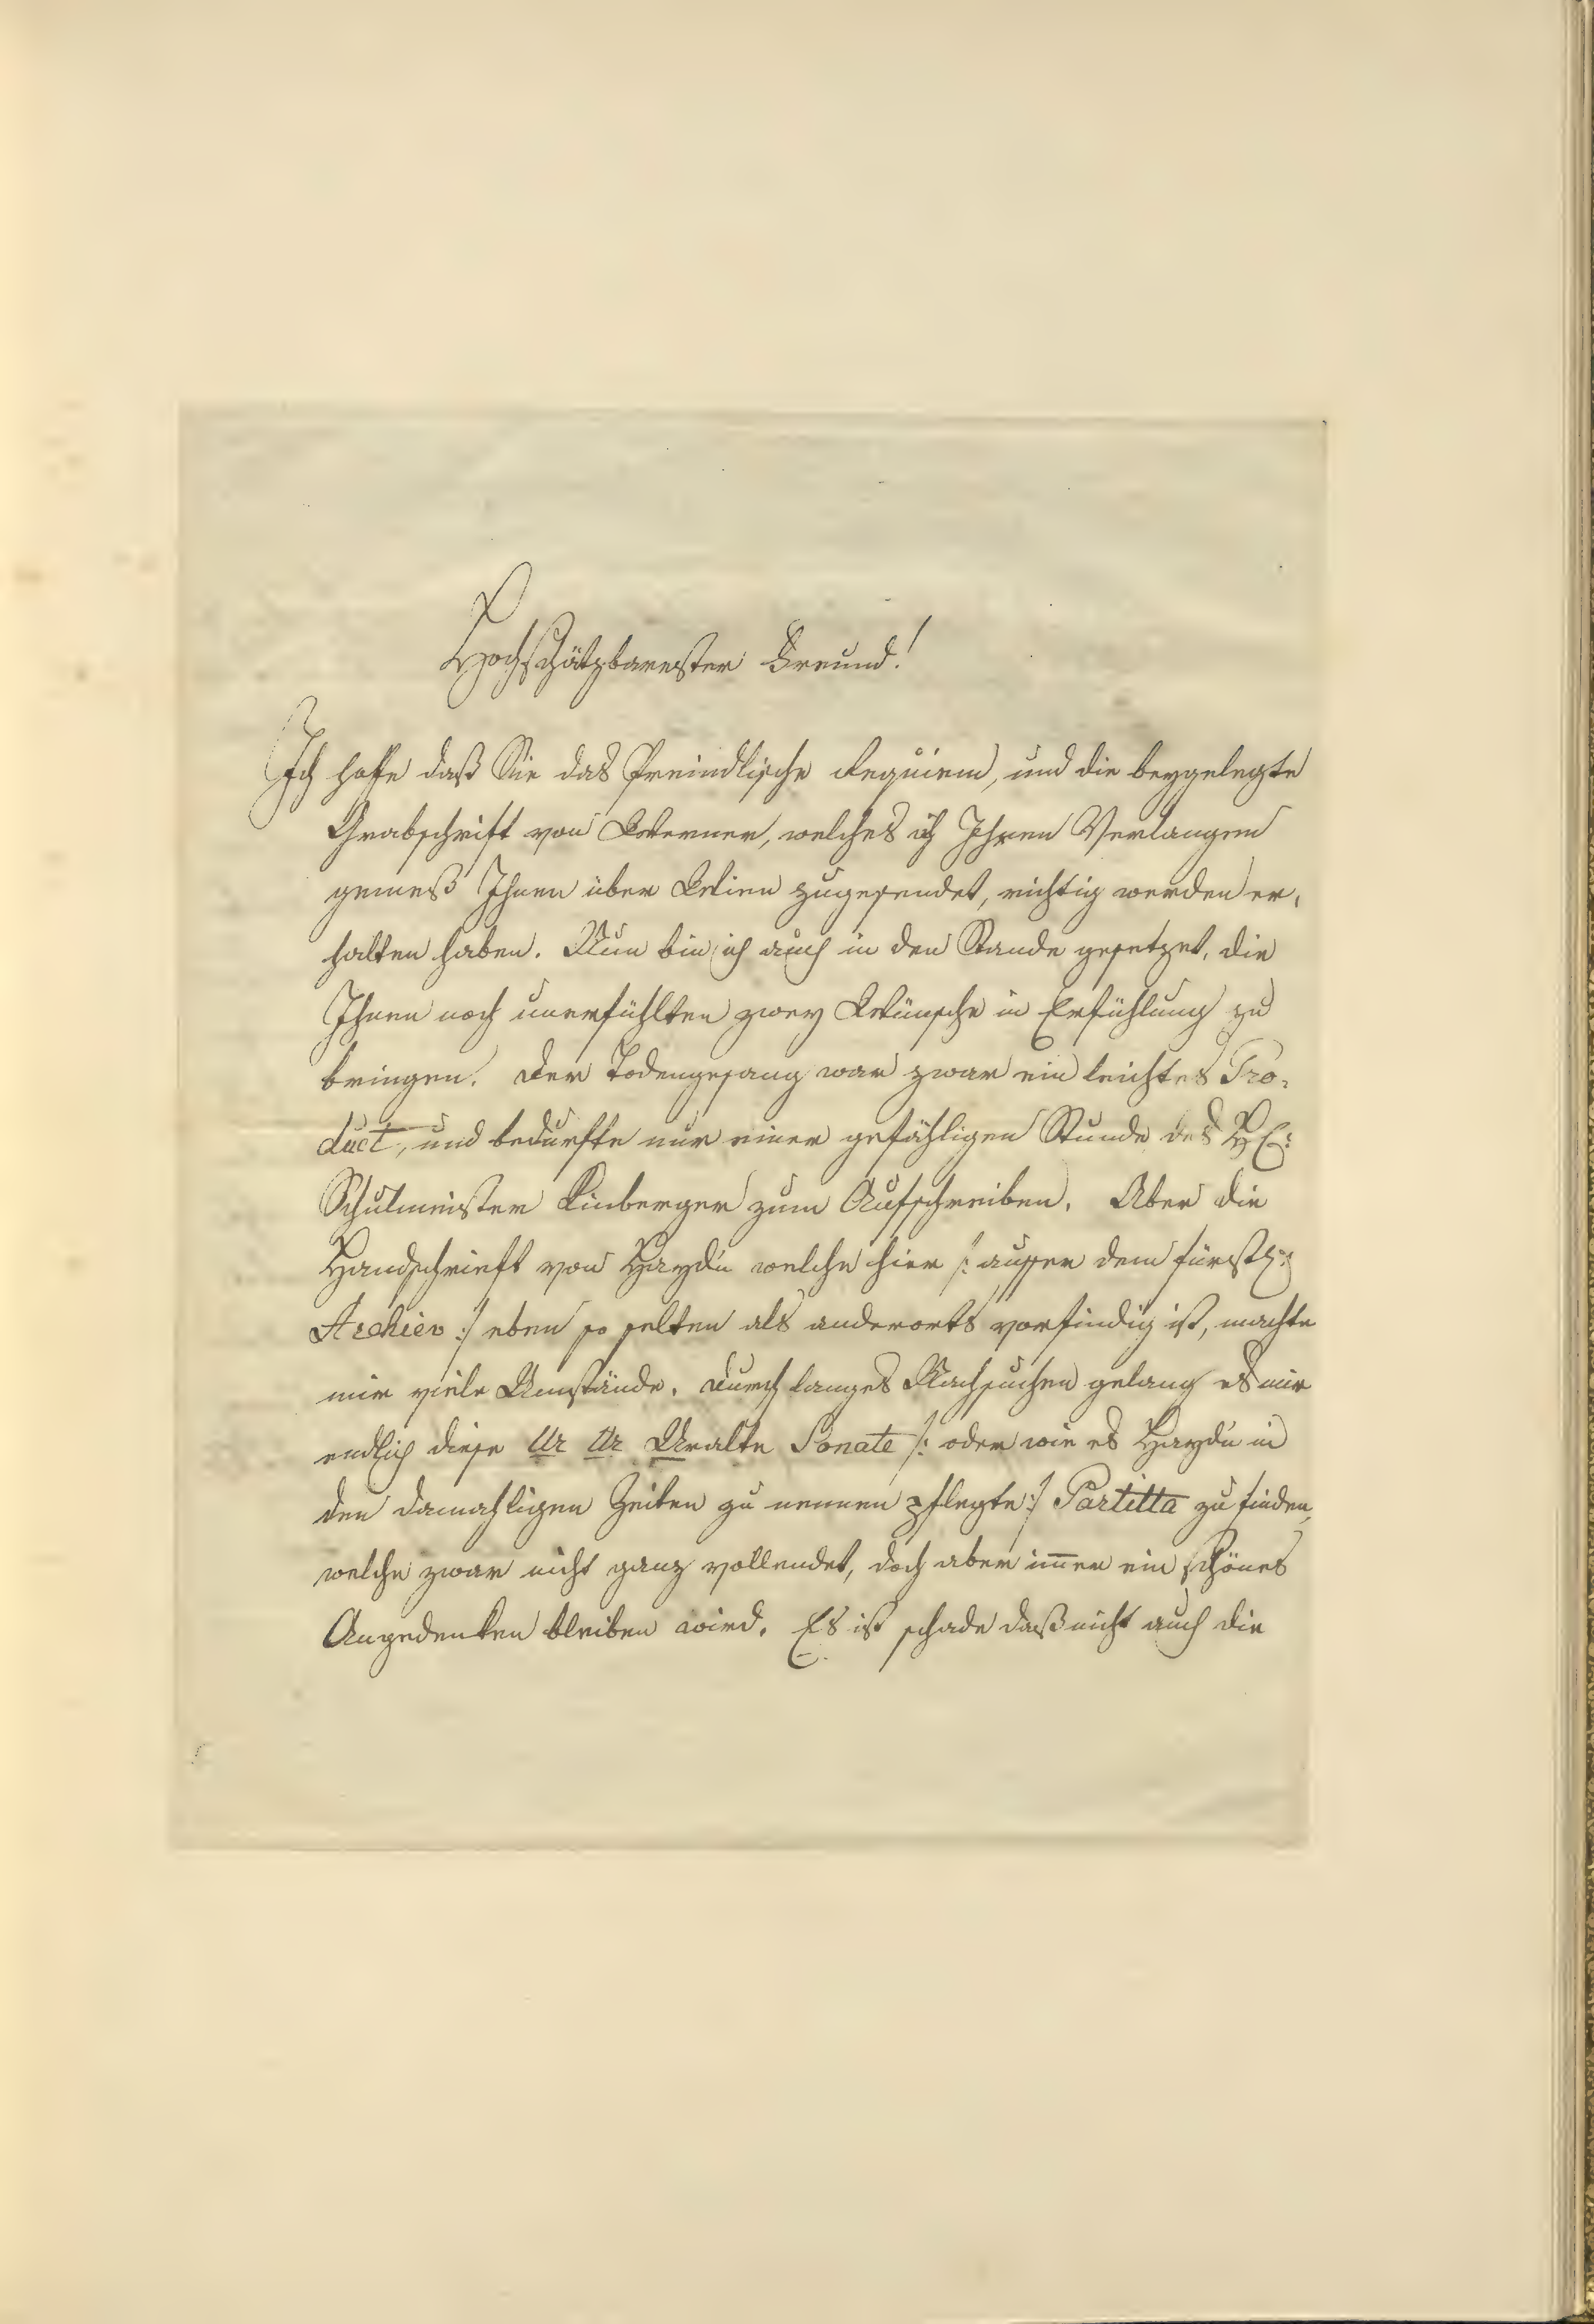 Hochschätzbarester Freund!
Ich hoffe daß Sie das Preindlische Requiem, und die beygelegte
Grabschrift von Werner, welches ich Ihren Verlangen
gemeß Ihnen über Wien zugesendet, richtig werden er,
halten haben. Nun bin ich auch in den Stande gesetzet, die
Ihnen noch unerfühlten zwey Wünsche in Erfühlung zu
bringen. Der Todengesang war zwar ein leichtes Pro,
duct, und bedurfte nur einer gefähligen Stunde des H E:
Schulmeister Limberger zum Aufschreiben. Aber die
Handschrieft von Haydn welche hier /: ausser dem fürstl:
Archiev :/ eben so selten als anderorts vorfindig ist, machte
mir viele Umstände. Durch langes Nachsuchen gelang es mir
endlich diese Ur Ur Uralte Sonate /: oder wie es Haydn in
den damahligen Zeiten zu nennen pflegte :/ Partitta zu finden,
welche zwar nicht ganz vollendet, doch aber im̅er ein schönes
Angedenken bleiben wird. Es ist schade daß nicht auch die